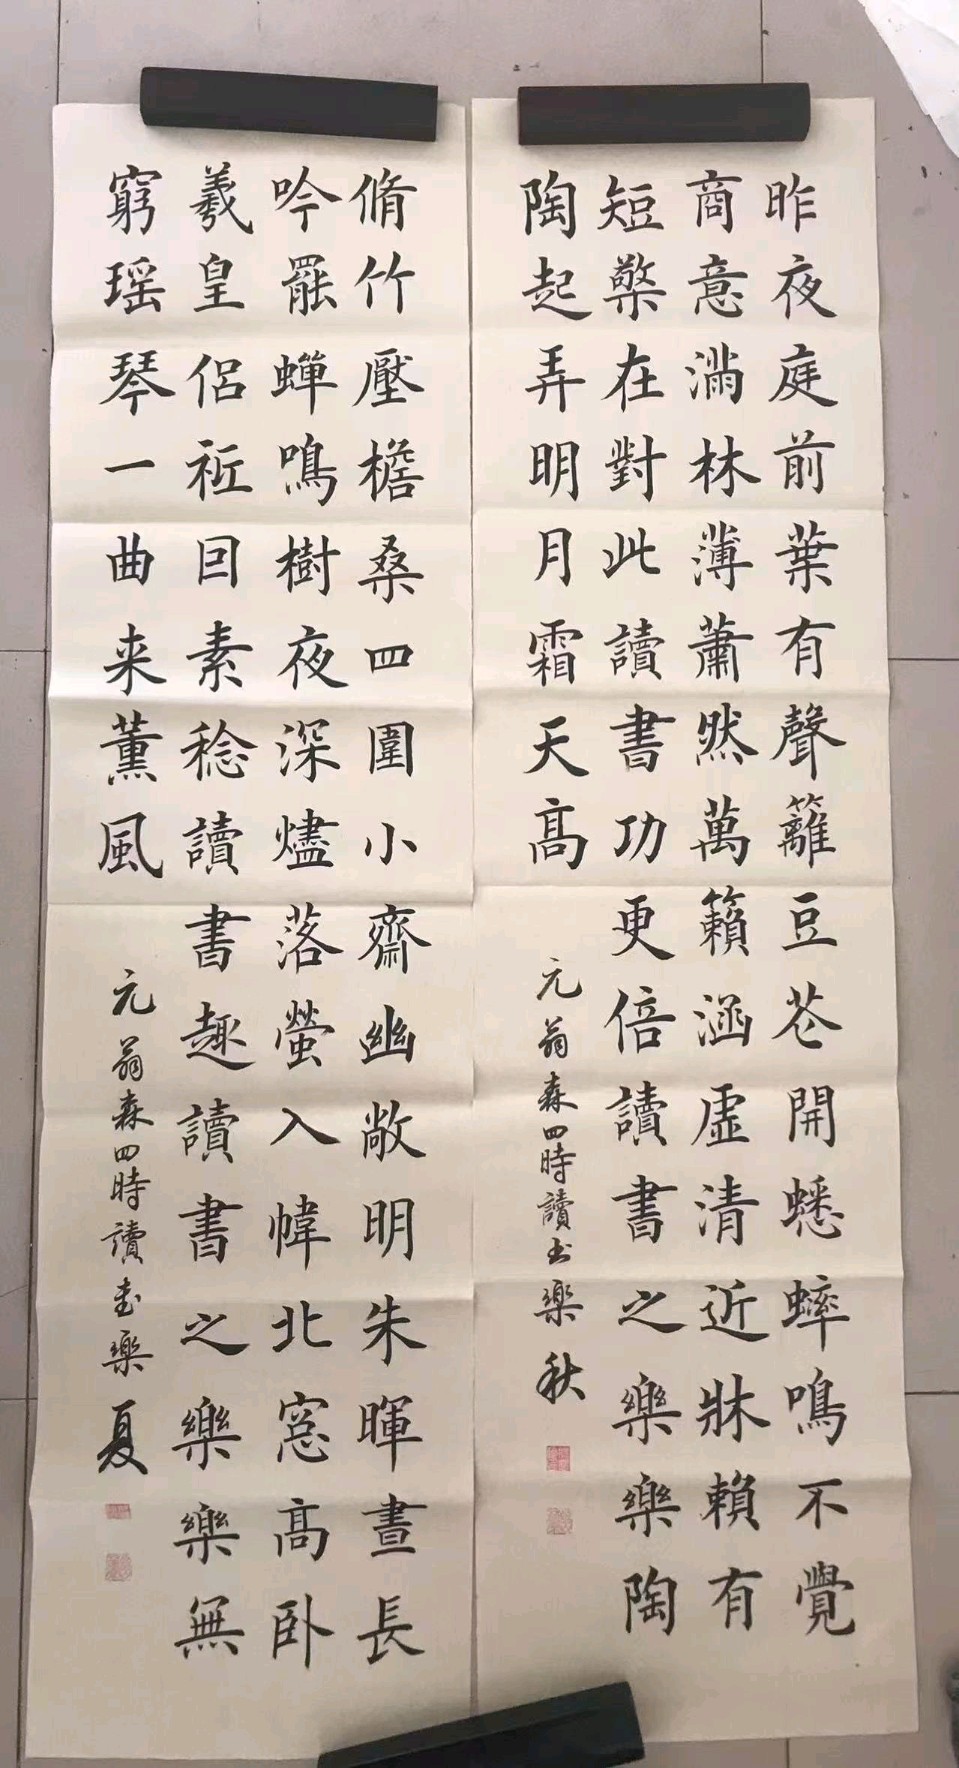 昨夜庭前葉有聲籬豆花開蟋蟀鳴不覺
商意滿林薄蕭然萬籟涵虛清近牀賴有
短檠在對此讀書功更倍讀書之樂樂陶
陶起弄明月霜天高
元翁森四時讀书樂 秋
脩竹壓檐桑四圍小齋幽敞明朱暉晝長
吟罷蟬鳴樹夜深燼落螢入幃北窓高卧
羲皇侣祗囙素稔讀書趣讀書之樂樂無
窮瑶琴一曲来薰風
元翁森四時讀書樂 夏